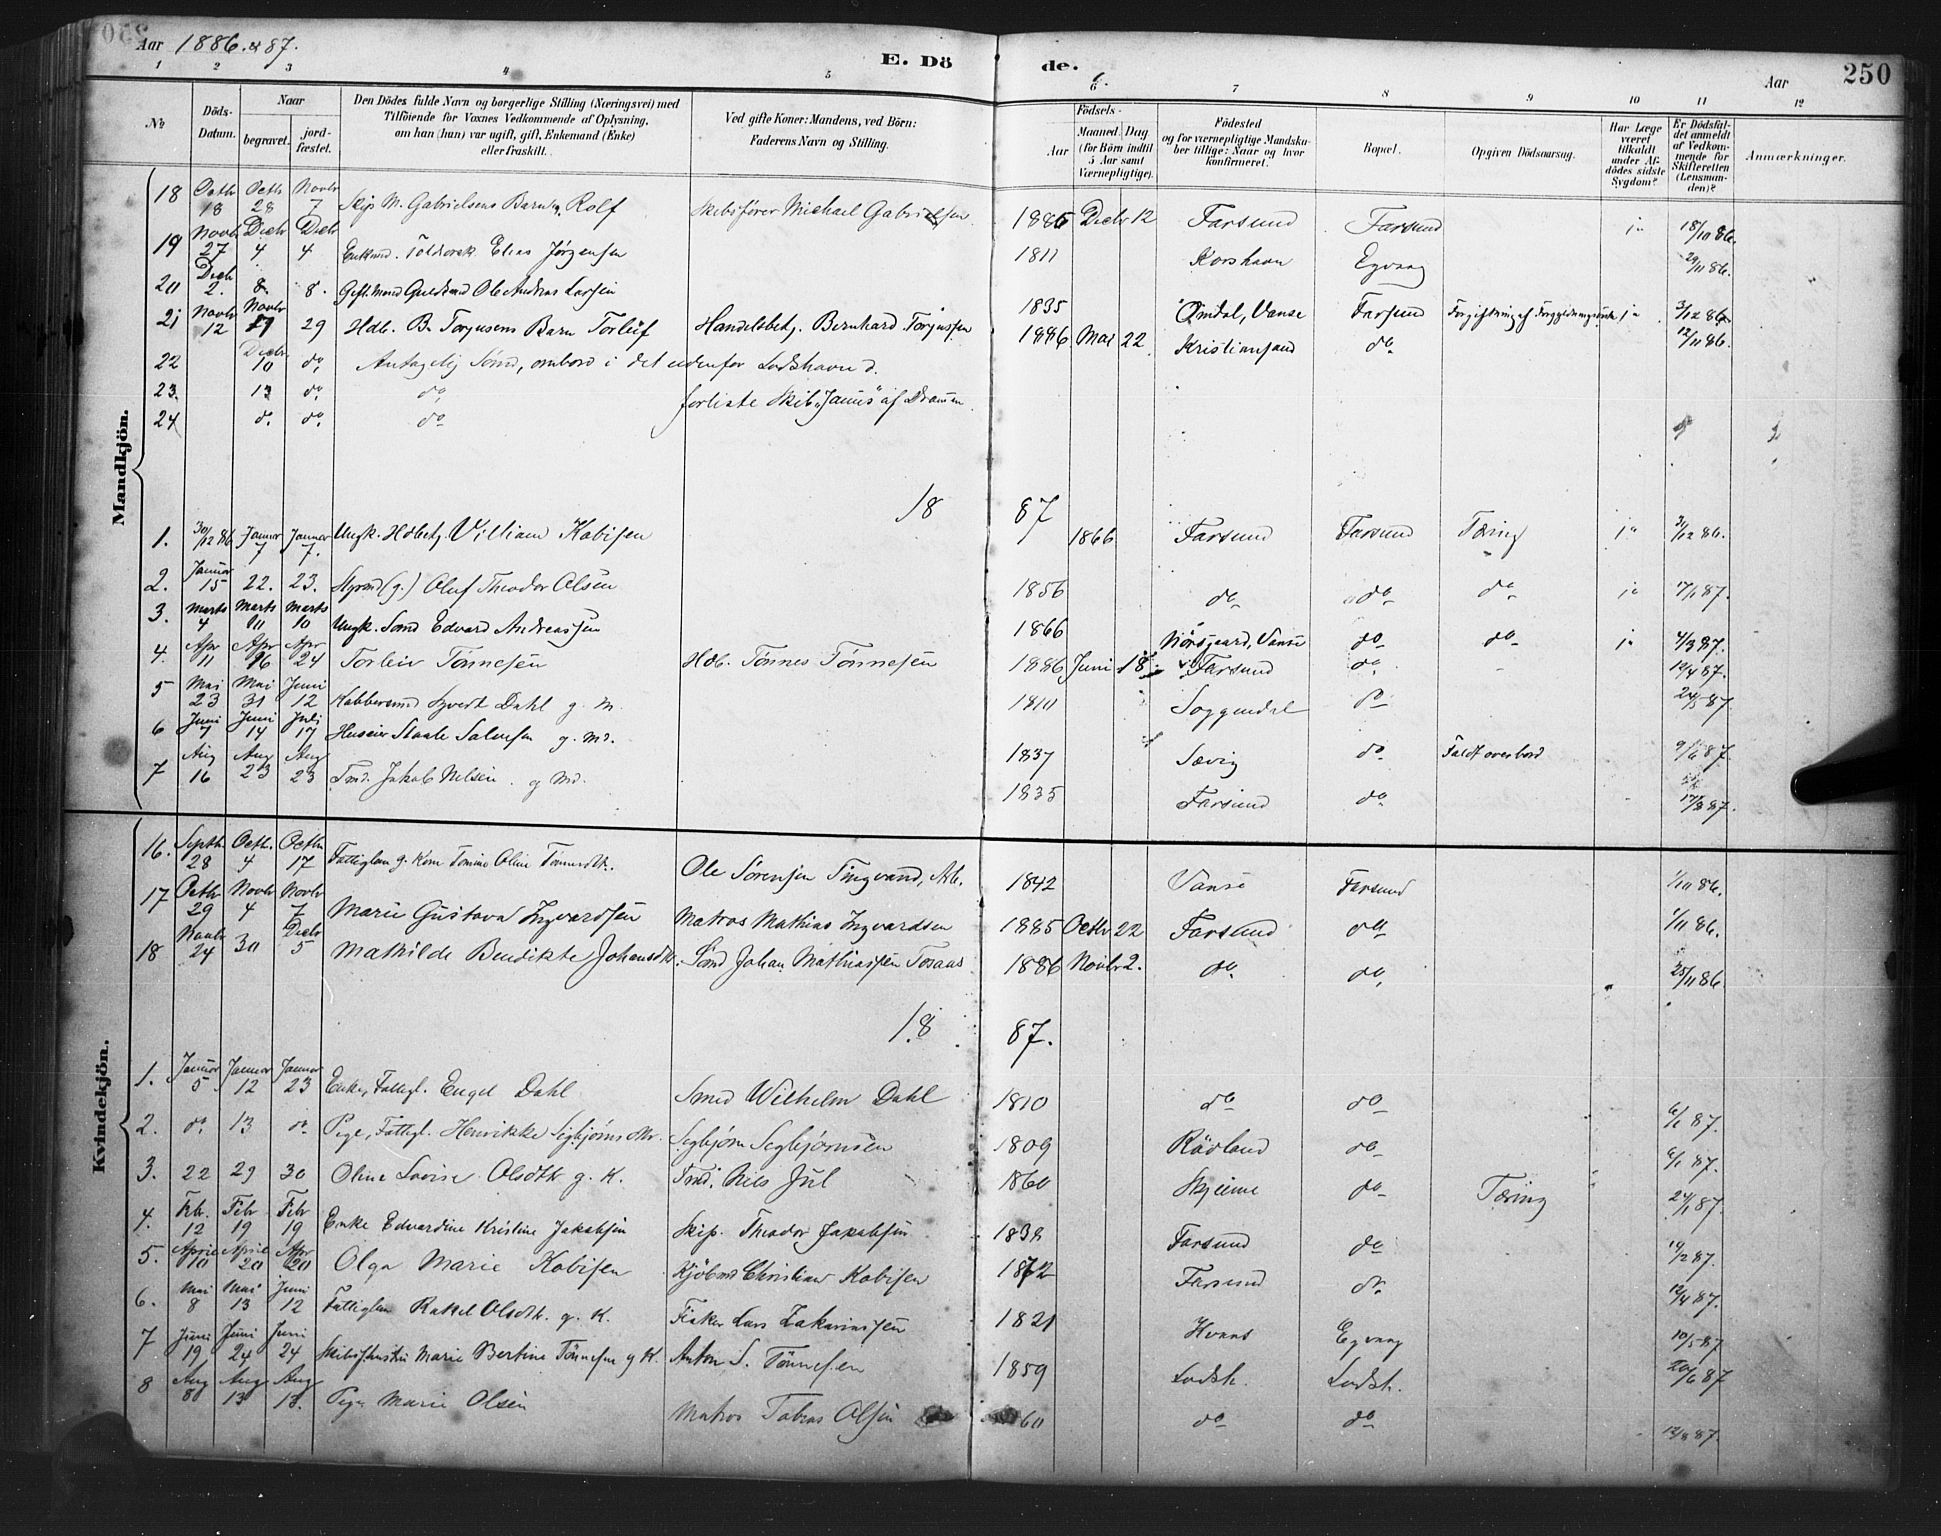 Aar 1886 & 87.
E. Dö de.
Aar
250
1 2 3 4 5 6 7 8 9 10 11 12
No
Döds-Datum.
Naar
begravet.
jord-fæstet.
Den Dödes fulde Navn og borgerlige Stilling (Næringsvei) med
Tilföiende for Voxnes Vedkommende af Oplysning,
om han (hun) var ugift, gift, Enkemand (Enke)
eller fraskilt.
Ved gifte Koner: Mandens, ved Börn:
Faderens Navn og Stilling.
Födsels-
Aar
Maaned. Dag.
(for Börn indtil
5 Aar samt
Værnepligtige).
Födested
og for værnepligtige Mandska-
ber tillige: Naar og hvor
konfirmeret.
Bopæl.
Opgiven Dödsaarsag.
Har Læge
været
tilkaldt
under Af-
dödes sidste
Sygdom?
Er Dödsfal-
det anmeldt
af Vedkom-
mende for
Skifteretten
(Lensman-
den)?
Anmærkninger.
Mandkjön.
18 Octb 18 Octb 28 Novbr 7 Skip. M. Gabrielsens Barn, Rolf Skibsfører Michael Gabrielsen 1885 Decbr 12 Farsund Farsund ja 18/10 86.
19 Novbr 27 Decbr 4 Decbr 4 Enkmd. Toldorsk. Elias Jørgensen 1811 Korshavn Egvaag 29/11 86.
20 Decbr 2. 8. 8. Gift. Mand Guldsmd Ole Andreas Larsen 1835 Omdal, Vanse Farsund Forgiftning af ja 3/12 86
21 Novbr 12 Novbr 29 Hdb. B. Torjusens Barn Torleif Handelsbetj. Bernhard Torjussen 1886 Mai 22 Kristiansand do. 12/11 86.
22 Decbr 10 do. Antagelig Sømd, ombord i det udenfor Lodshavn
23. 13 do. do. forliste Skib "Janus" af Drammen.
24 do. do. do
18 87
1. 30/12 86 Januar 7 Januar 7. Ungk. Hdbetj. William Kabisen 1866 Farsund Farsund Tæring ja 31/12 86.
2. Januar 15 22. 23. Styrmd (g.) Oluf Theodor Olsen 1856 do do do ja 17/1 87.
3. Marts 4 Marts 11 Marts 10 Ungk. Sømd Edvard Andreassen 1866 Vanse do do ja 4/3 87.
4. Apr 11 Apr 16 Apr 24 Torleiv Tønnesen Hdb. Tønnes Tønnesen 1886 Juni 18 Farsund do. 12/4 87.
5 Mai 23 Mai 31 Juni 12 Dahl g. M. 1810 Soggendal do 24/5 87
6 Juni 7 Juni 14 Juli 17 Staale Salvesen g. Md. 1837 Sævig do. Faldt overbord 9/6 87
7 Aug 16 Aug 23 Aug 23 Tmd. Jakob Nelsen g Md. 1835 Farsund do. 17/8 87.
Kvindekjön.
16. Septb. 28 Octb. 4 Octbr 17 Fattiglem g. Kone Tomine Oline Tønnesdtr. Ole Sørensen Tingvand, Arb. 1842 Vanse Farsund 1/10 86.
17 Octb 29 Novbr 4 Novbr 7 Marie Gustava Ingvardsen Matros Mathias Ingvardsen 1885 Octbr 22 Farsund do 1/11 86.
18 Novbr 24 30 Decbr 5 Mathilde Bendikte Johansdtr. Sømd Johan Mathiassen 1886 Novbr 2. do. do. 25/11 86.
18 87.
1. Januar 5 Januar 12 Januar 23 Enke, Fattigl. Engel Dahl Smed Wilhelm Dahl 1810 do do 6/1 87.
2. do. 13 do. Pige, Fattigl. Henrikke Segbjørnsdtr. Segbjørn Segbjørnsen 1809 Rødland do 6/1 87.
3. 22 29 30 Oline Lovise Olsdtr g. K. Tmd. Nils Jul 1860 Skjeime do Tæring 24/1 87.
4. Febr. 12 Febr 19 Febr 19 Enke Edvardine Kristine Jakobsen Skip. Theodor Jakobsen 1838 Farsund do 14/2 87.
5. April 10 April 20 Apr 20 Olga Marie Kabisen Kjøbmd Christian Kabisen 1872 Farsund do. 12/4 87.
6. Mai 8 Mai 13 Juni 12 Fattiglem Rakel Olsdtr. g. K. Fisker Lars Zakariassen 1821 Hvans Egvaag 10/5 87
7 Juni 19 Juni 24 Juni 24 Marie Bertine Tønnesen g K. Anton S. Tønnesen 1859 Lodsh. Lodsh. 20/6 87
8 Aug 8 Aug 13 Aug 13. Pige Marie Olsen Matros Tobias Olsen 60 do do 12/8 87.